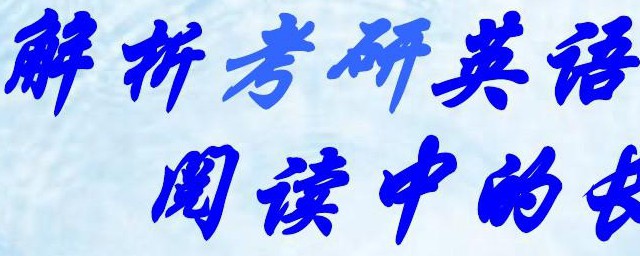 解析考研英语
阅读中的长